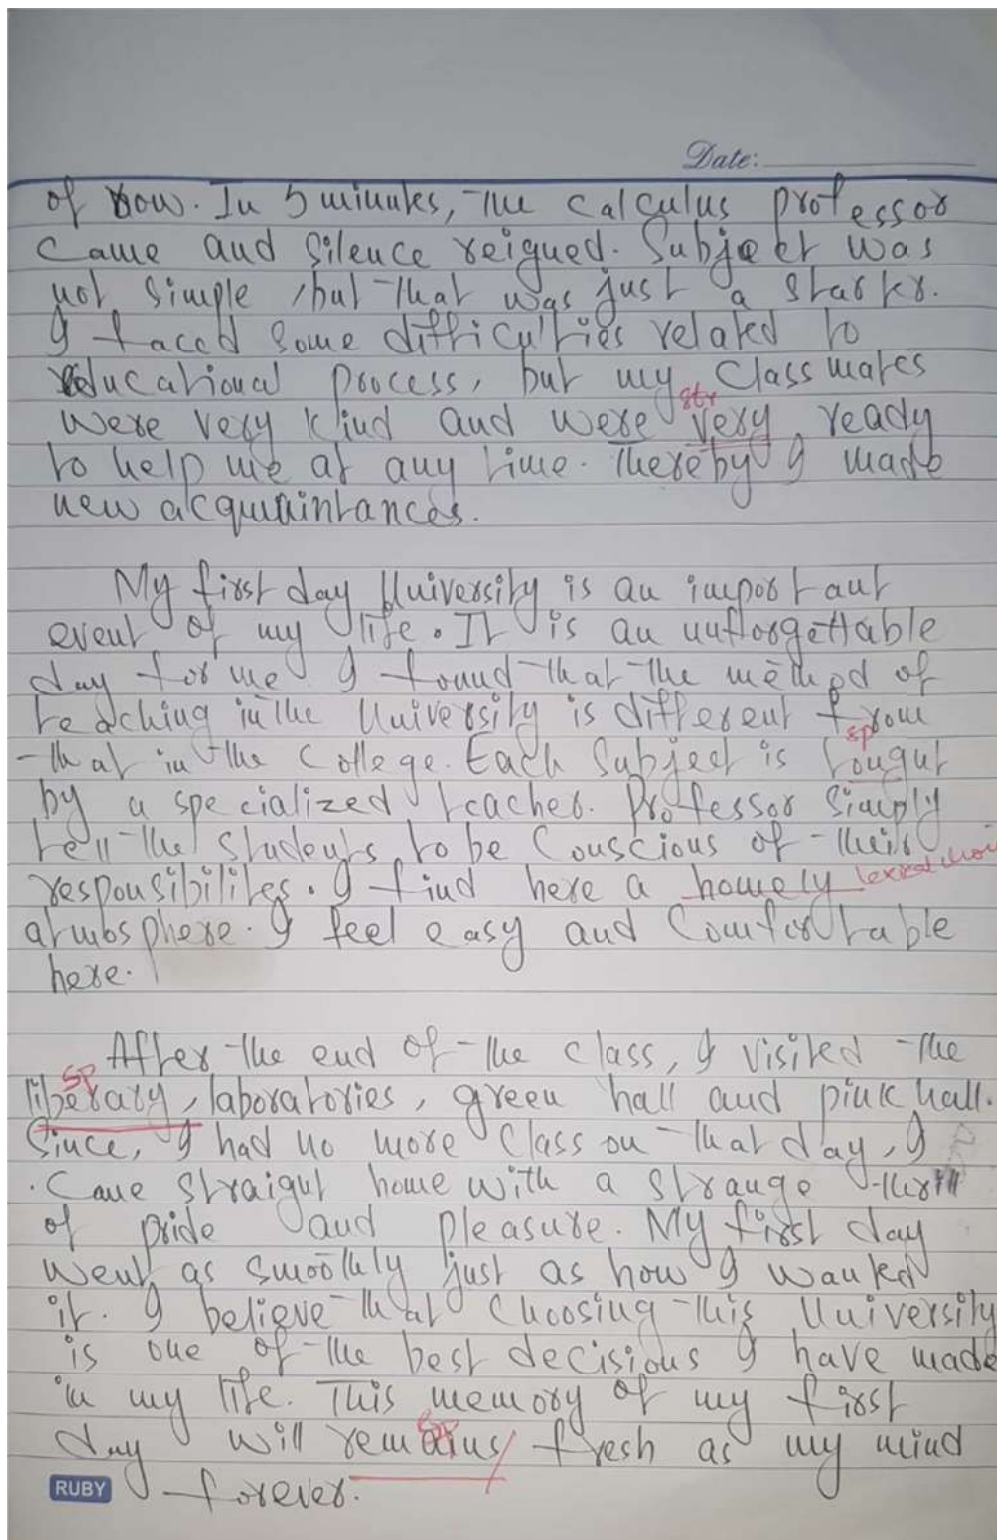 Date:
of row. In 5 minutes, the calculus professor
came and silence reigned. Subject was
not simple, but that was just a starts.
I faced some difficulties related to
educational process, but my classmates
str
were very kind and were very ready
to help me at any time. Thereby I made
new acquuaintances.
My first day University is an important
event of my life. It is an unforgettable
day for me. I found that the method of
teaching in the University is different from
sp
that in the college. Each subject is tougut
by a specialized teacher. Professor simply
tell the students to be conscious of their
responsibilites. I find here a homely lexical
atmosphere. I feel easy and comfortable
here.
After the end of the class, I visited the
sp
liberary, laboratories, green hall and pink hall.
Since, I had no more class on that day, I
came straigut home with a strange thrill
of pride and pleasure. My first day
went as smoothly just as how I wanted
it. I believe that choosing this University
is one of the best decisions I have made
in my life. This memory of my first
day will remains fresh as my mind
RUBY forever.